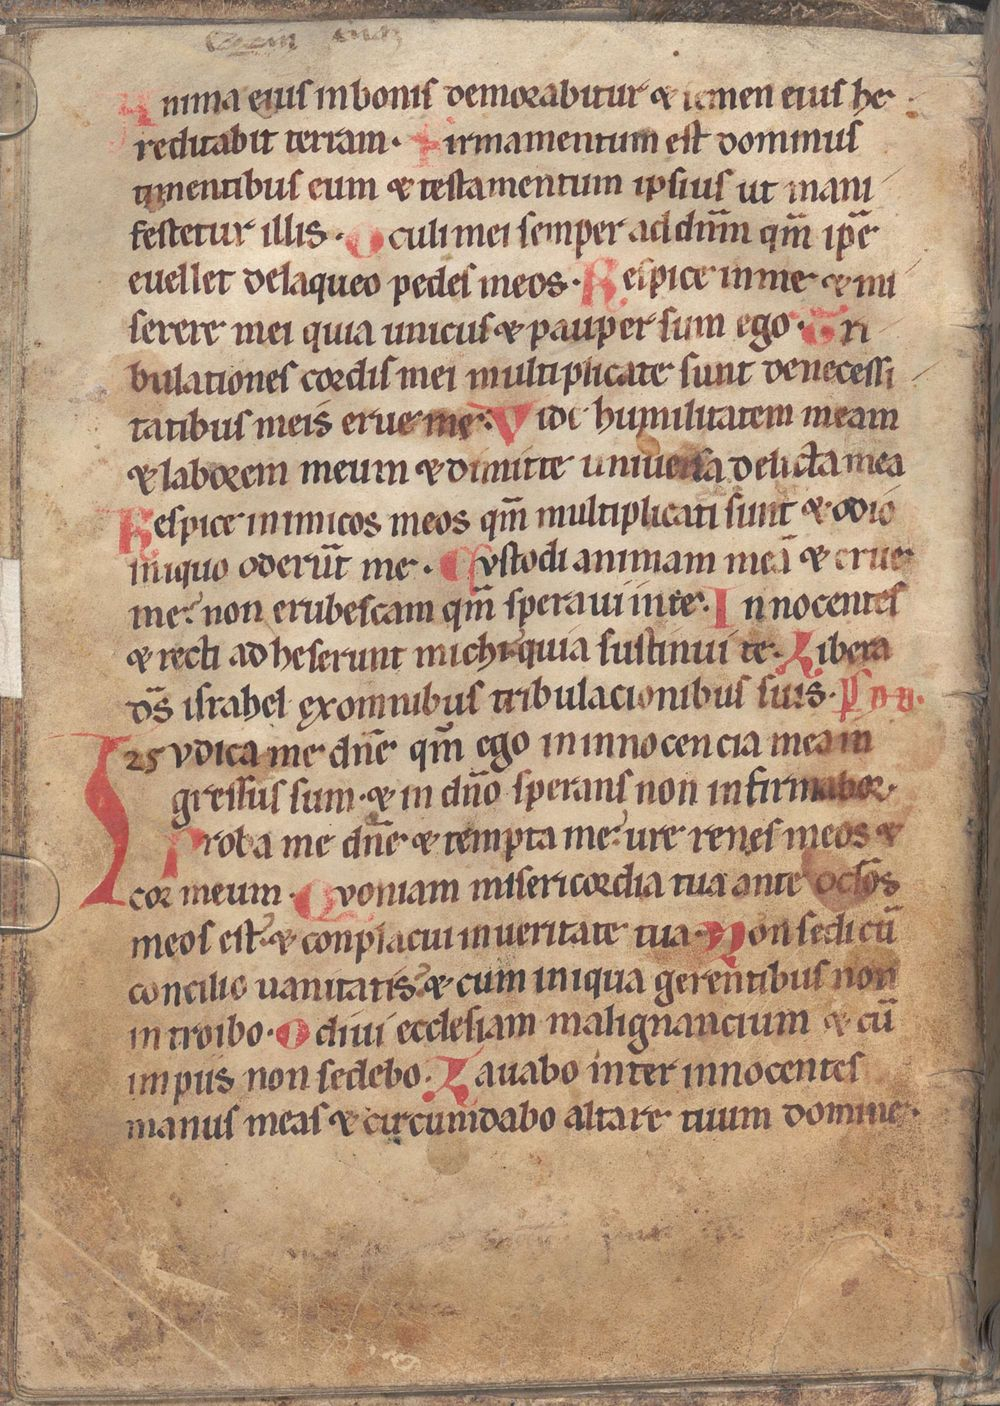 Anima eius in bonis demorabitur & semen eius he
reditabit terram. Firmamentum est dominus
timentibus eum & testamentum ipsius ut mani
festetur illis. Oculi mei semper ad dn̄m qm̄ ipse
euellet de laqueo pedes meos. Respice in me & mi
serere mei quia unicus & pauper sum ego. Tri
bulationes cordis mei multiplicate sunt de necessi
tatibus meis erue me. Vide humilitatem meam
& laborem meum & dimitte uniuersa delicta mea
Respice inimicos meos qm̄ multiplicati sunt & odio
iniquo oderūt me. Cvstodi animam meā & erue
me: non erubescam qm̄ speraui in te. Innocentes
& recti adheserunt michi quia sustinui te. Libera
ds̄ israhel exomnibus tribulacionibus suis.
25 Ivdica me dn̄e qm̄ ego in innocencia mea in
gressus sum. & in dn̄o sperans non infirmabor.
Proba me dn̄e & tempta me: ure renes meos &
cor meum. Qvoniam misericordia tua ante oc̄los
meos est. & conplacui in ueritate tua. Non sedi cū
concilio uanitatis & cum iniqua gerentibus non
introibo. Odiui ecclesiam malignancium & cū
impiis non sedebo. Lauabo inter innocentes
manus meas & circumdabo altare tuum domine.